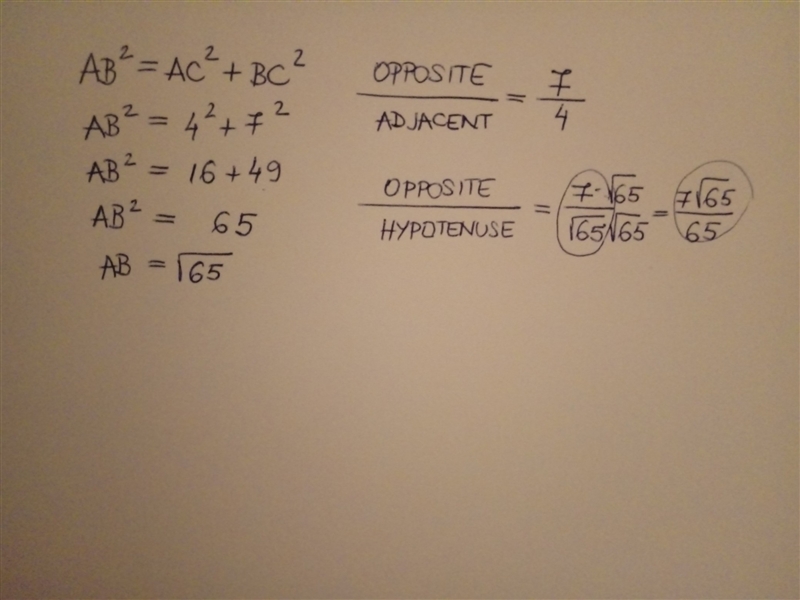 AB² = AC² + BC²
AB² = 4² + 7²
AB² = 16 + 49
AB² = 65
AB = √65
OPPOSITE / ADJACENT = 7 / 4
OPPOSITE / HYPOTENUSE = 7·√65 / √65√65 = 7√65 / 65